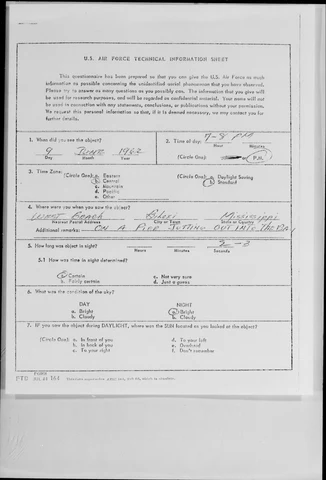 U.S. AIR FORCE TECHNICAL INFORMATION SHEET
This questionnaire has been prepared so that you can give the U.S. Air Force as much
information as possible concerning the unidentified aerial phenomenon that you have observed.
Please try to answer as many questions as you possibly can. The information that you give will
be used for research purposes, and will be regarded as confidential material. Your name will not
be used in connection with any statements, conclusions, or publications without your permission.
We request this personal information so that, if it is deemed necessary, we may contact you for
further details.
1. When did you see the object?
9 June 1962
Day Month Year
2. Time of day: 7-8 PM
Hour Minutes
(Circle One): P.M.
3. Time Zone:
(Circle One): a. Eastern
b. Central
c. Mountain
d. Pacific
e. Other
(Circle One): a. Daylight Saving
b. Standard
4. Where were you when you saw the object?
West Beach Biloxi Mississippi
Nearest Postal Address City or Town State or Country
Additional remarks: ON A PIER JUTTING OUT INTO THE BAY
5. How long was object in sight? 2-3
Hours Minutes Seconds
5.1 How was time in sight determined?
a. Certain c. Not very sure
b. Fairly certain d. Just a guess
6. What was the condition of the sky?
DAY NIGHT
a. Bright a. Bright
b. Cloudy b. Cloudy
7. IF you saw the object during DAYLIGHT, where was the SUN located as you looked at the object?
(Circle One): a. In front of you d. To your left
b. In back of you e. Overhead
c. To your right f. Don't remember
FORM
FTD 164